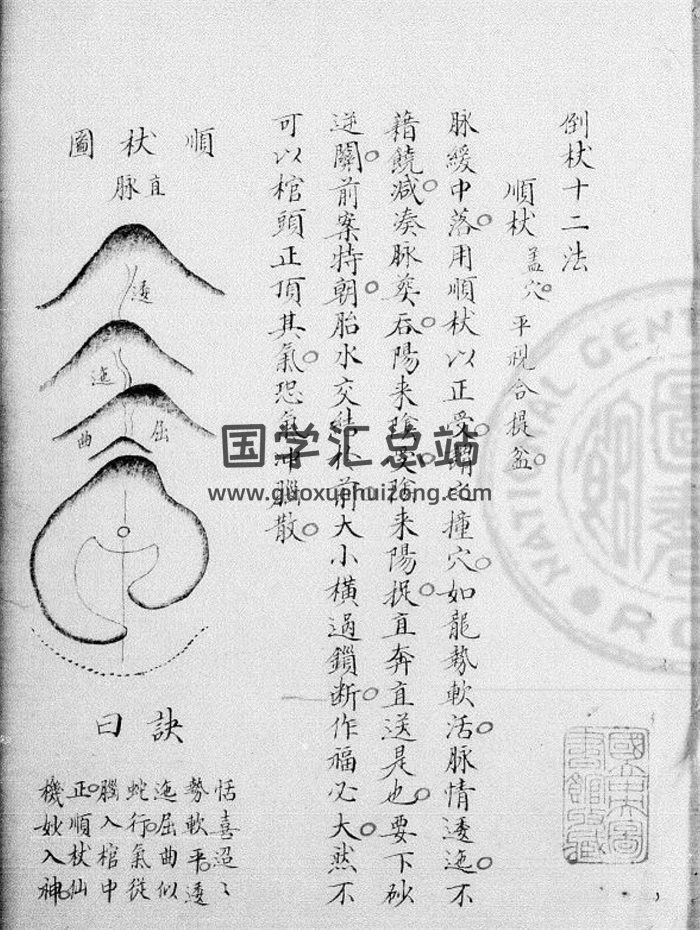 倒杖十二法
順杖 盖穴。平視合提盆。
脉緩中落。用順杖以正受。謂之撞穴。如龍勢軟活。脉情逶迤。不
藉饒减。湊脉葬。吞陽来陰受。陰来陽捉。直奔直送是也。要下砂
逆關。前案特朝。胎水交結於前。大小橫過鎖断。作福必大。然不
可以棺頭正頂其氣。恐氣冲腦散。
順杖圖
直脉
逶
迤
屈
曲
訣曰
恬喜迢〻
勢軟平。逶
迤屈曲似
蛇行。氣從
腦入棺中
正。順杖仙
機妙入神。
国学汇总站
www.guoxuehuizong.com
NATIONAL CENT